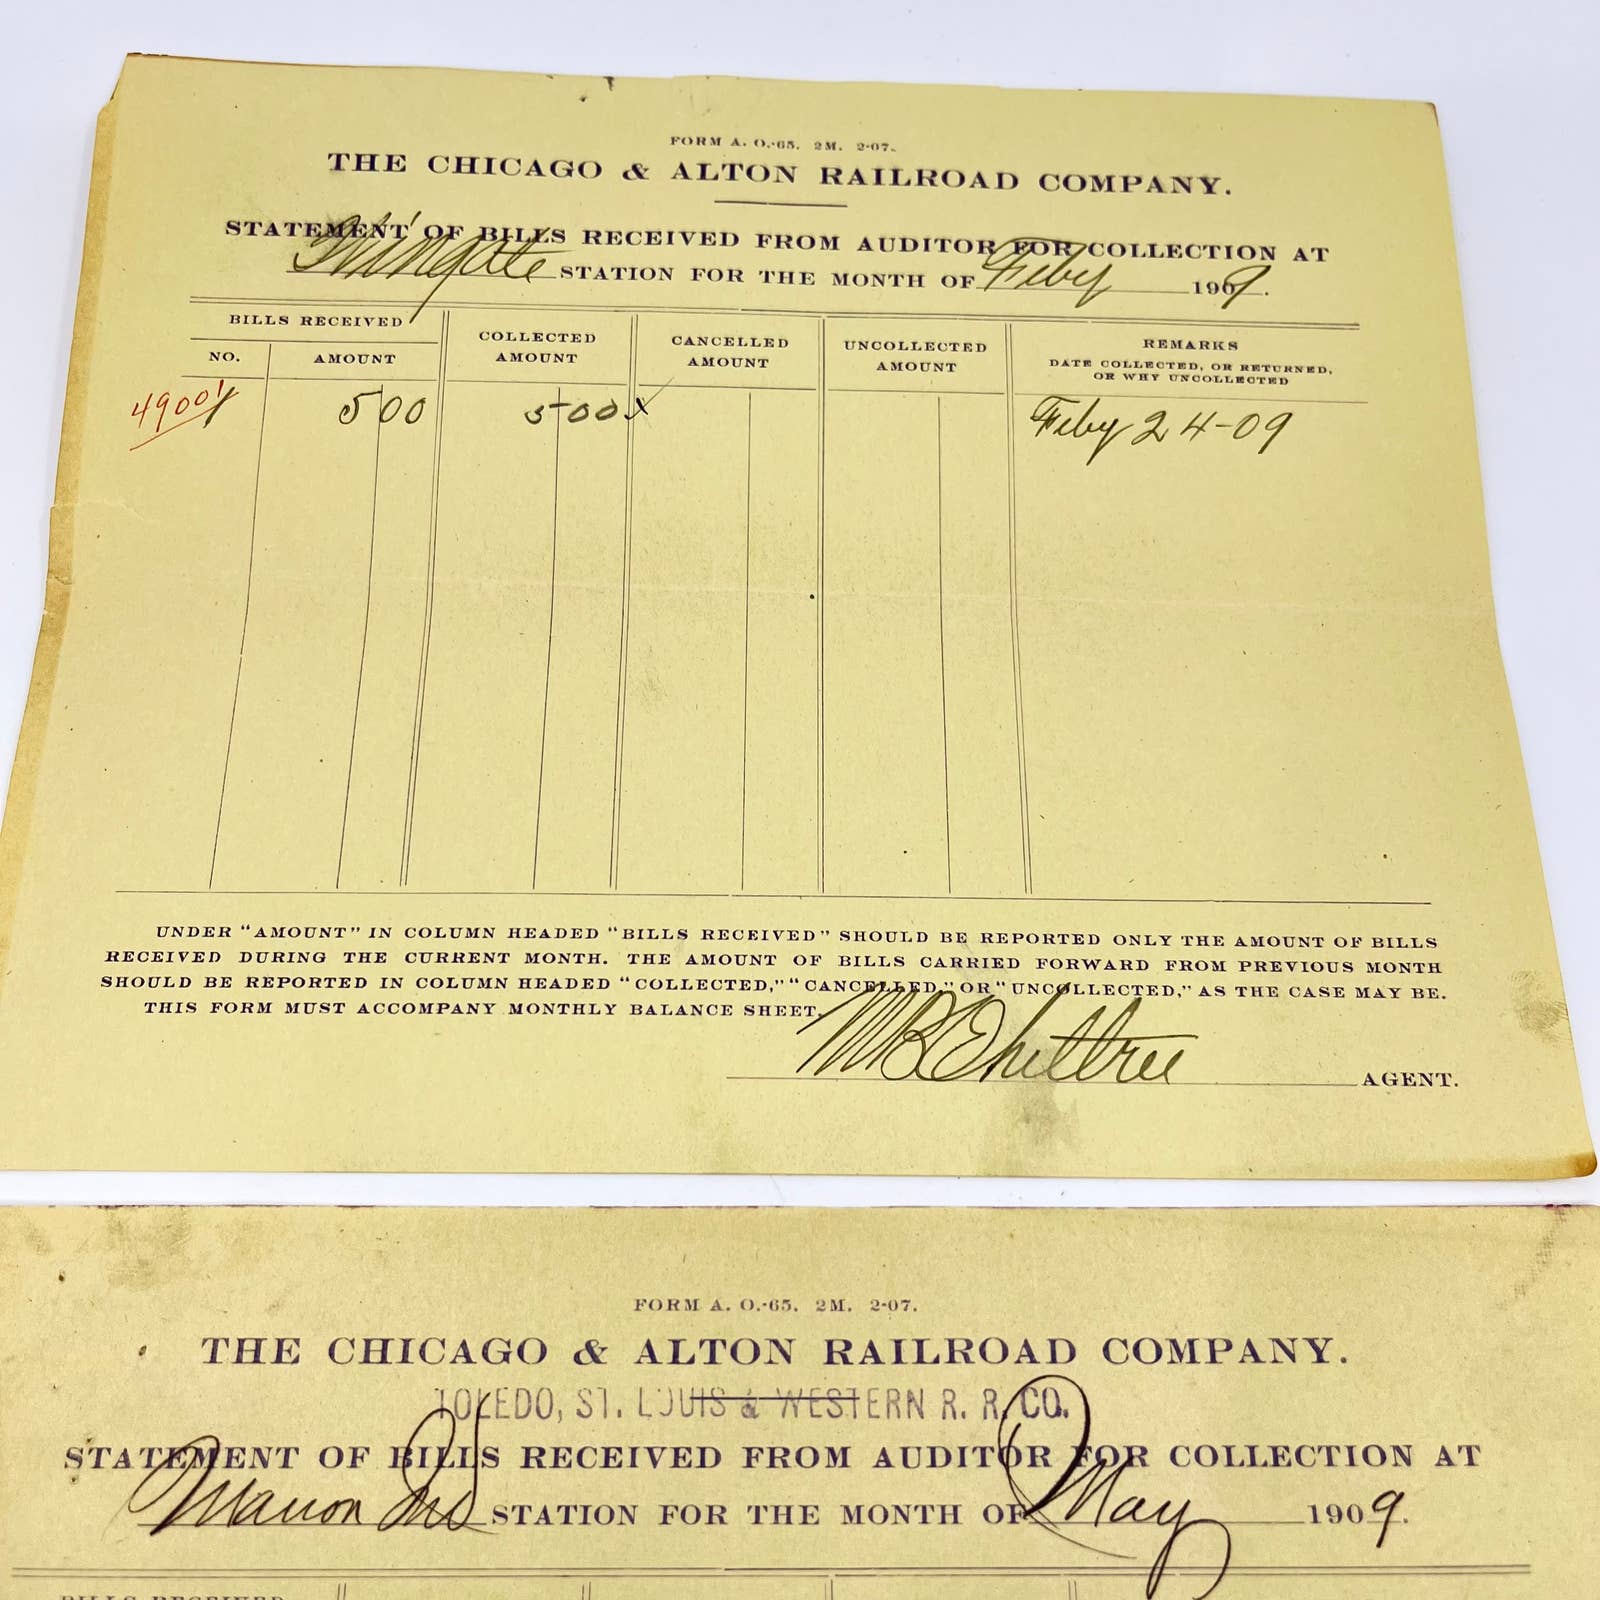 FORM A. O.-65. 2M. 2-07.
THE CHICAGO & ALTON RAILROAD COMPANY.
STATEMENT OF BILLS RECEIVED FROM AUDITOR FOR COLLECTION AT
Wingate STATION FOR THE MONTH OF Feby 1909.
BILLS RECEIVED
NO. AMOUNT
COLLECTED AMOUNT
CANCELLED AMOUNT
UNCOLLECTED AMOUNT
REMARKS
DATE COLLECTED, OR RETURNED,
OR WHY UNCOLLECTED
49001 5 00 5 00 x Feby 24-09
UNDER "AMOUNT" IN COLUMN HEADED "BILLS RECEIVED" SHOULD BE REPORTED ONLY THE AMOUNT OF BILLS
RECEIVED DURING THE CURRENT MONTH. THE AMOUNT OF BILLS CARRIED FORWARD FROM PREVIOUS MONTH
SHOULD BE REPORTED IN COLUMN HEADED "COLLECTED," "CANCELLED," OR "UNCOLLECTED," AS THE CASE MAY BE.
THIS FORM MUST ACCOMPANY MONTHLY BALANCE SHEET.
AGENT.
FORM A. O.-65. 2M. 2-07.
THE CHICAGO & ALTON RAILROAD COMPANY.
TOLEDO, ST. LOUIS & WESTERN R. R. CO.
STATEMENT OF BILLS RECEIVED FROM AUDITOR FOR COLLECTION AT
Marion Ind STATION FOR THE MONTH OF May 1909.
BILLS RECEIVED